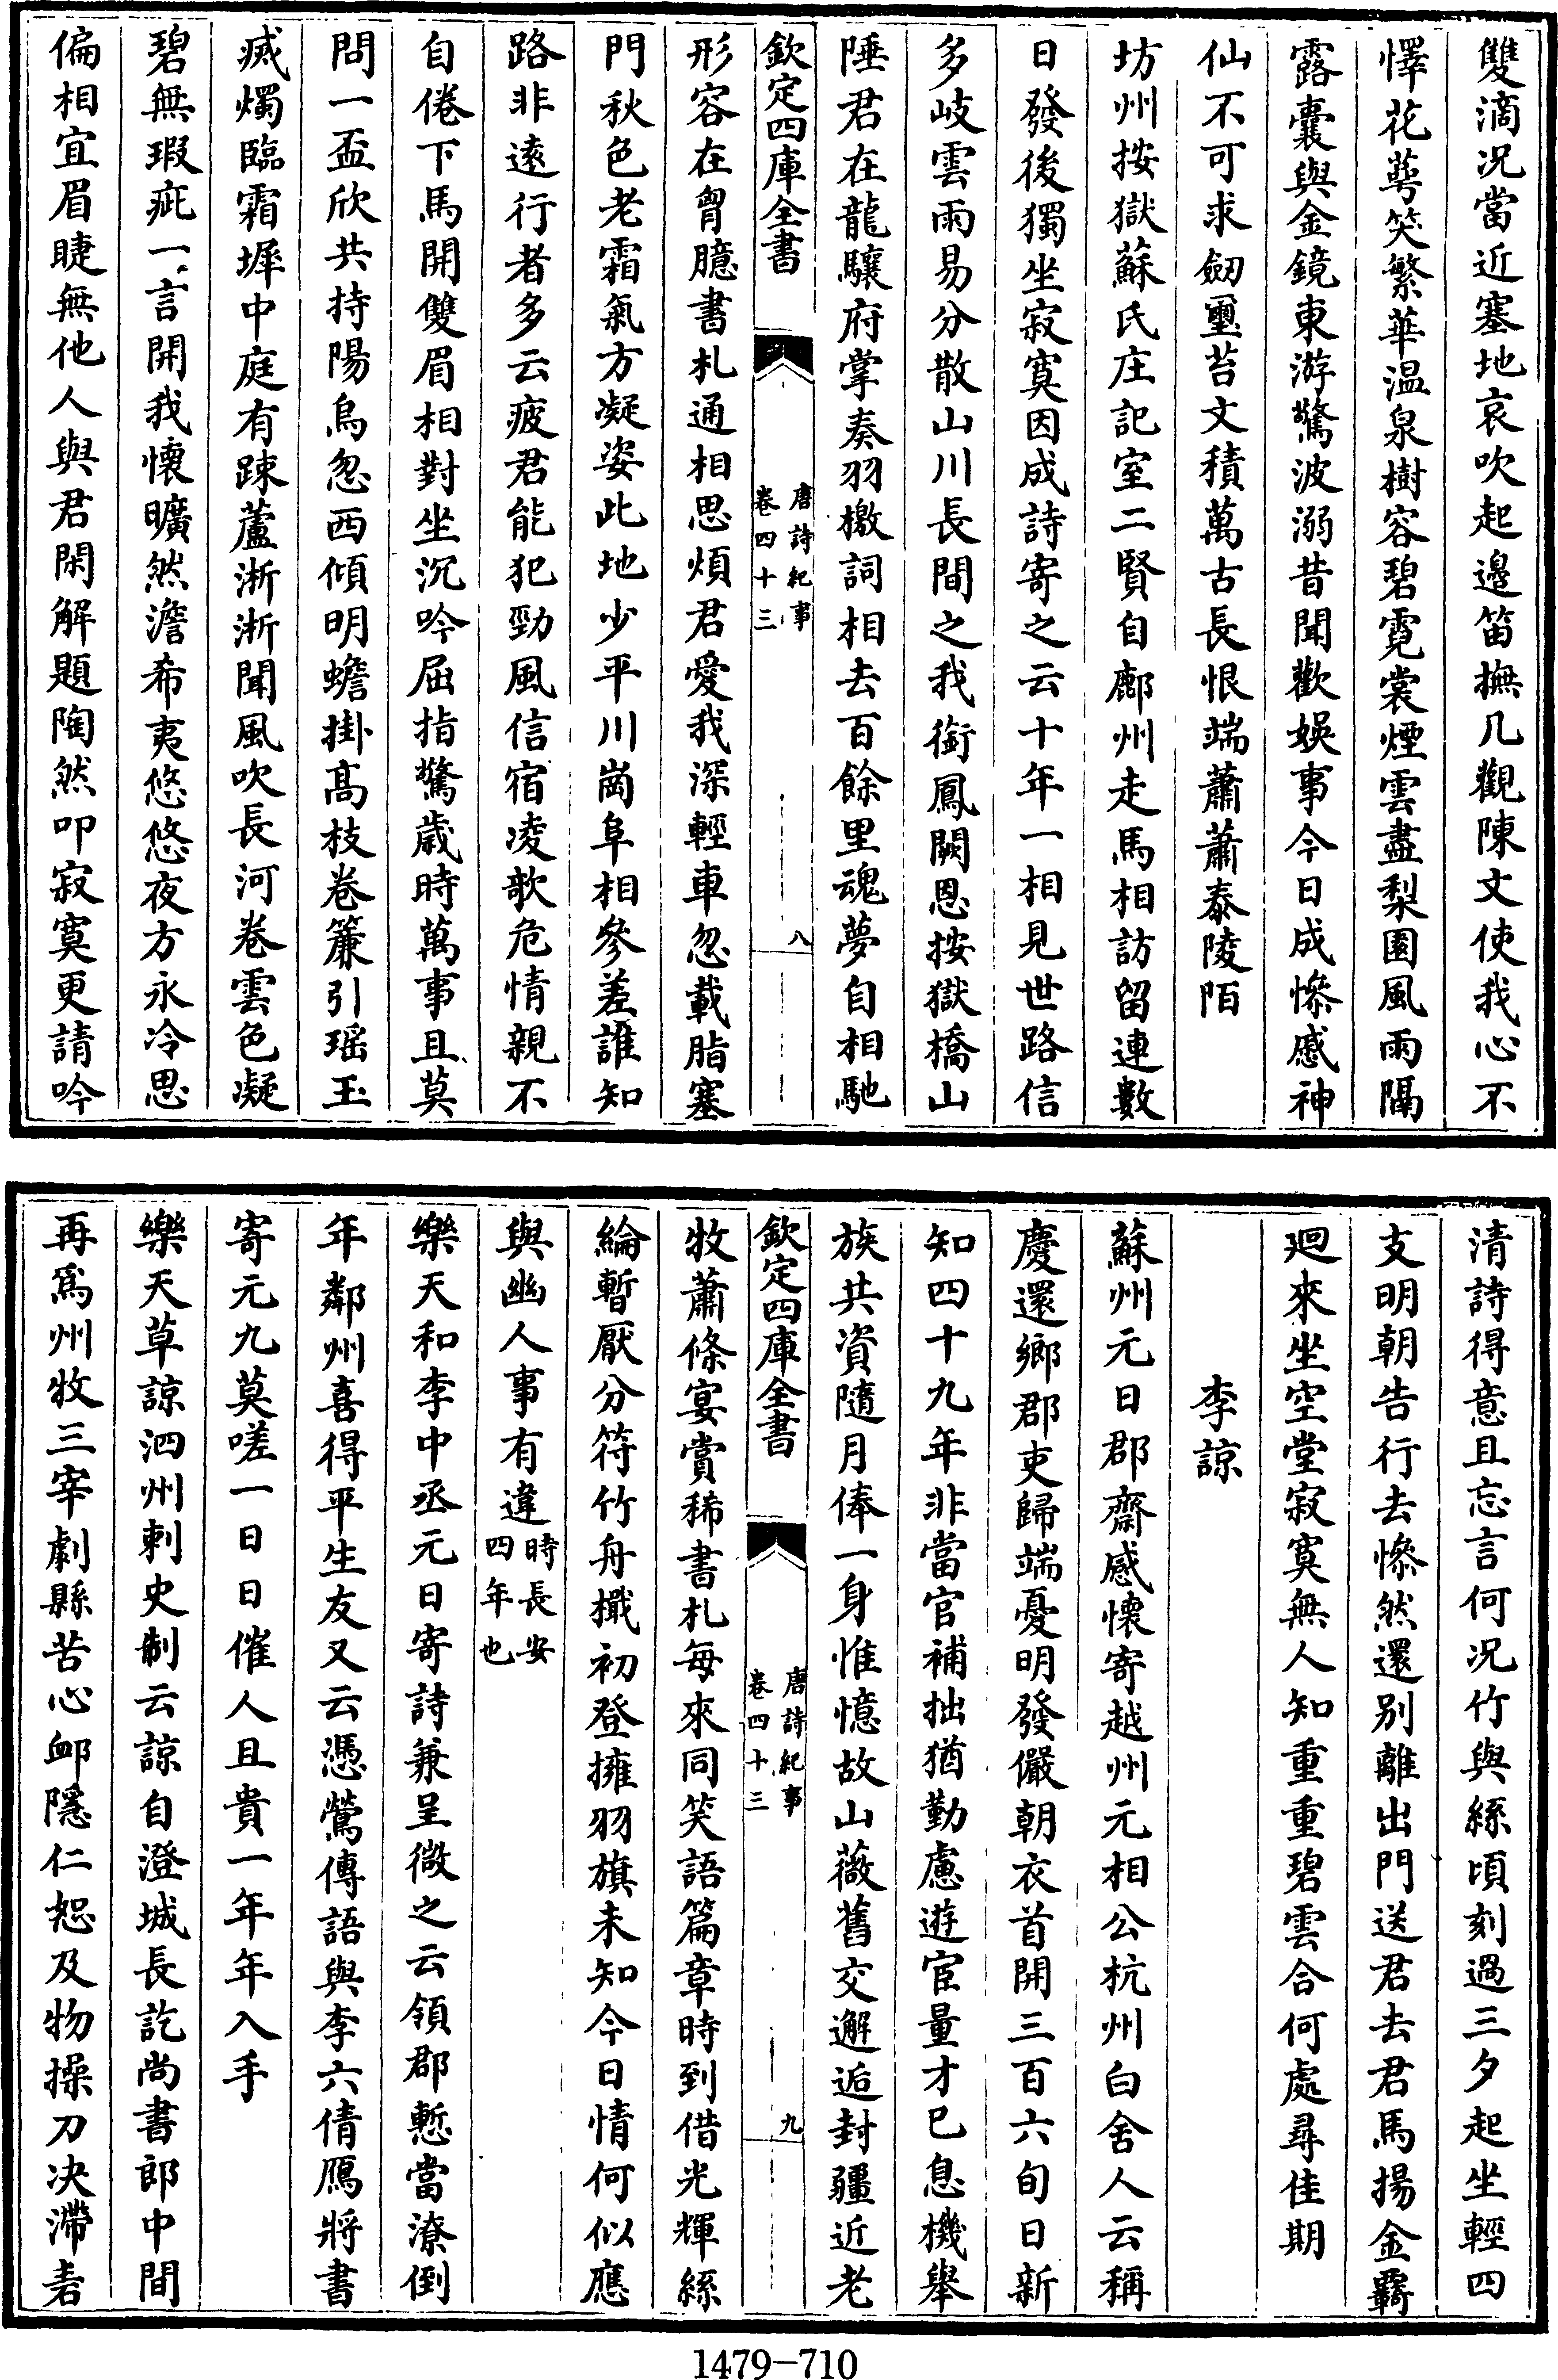 雙滴况當近塞地哀吹起邊笛撫几觀陳文使我心不
懌花萼笑繁華温泉樹容碧霓裳煙雲盡梨園風雨隔
露囊與金鏡東游驚波溺昔聞歡娱事今日成慘慼神
仙不可求劒璽苔文積萬古長恨端蕭蕭泰陵陌
坊州按獄蘇氏庄記室二賢自鄜州走馬相訪留連數
日發後獨坐寂寞因成詩寄之云十年一相見世路信
多岐雲雨易分散山川長間之我銜鳳闕恩按獄橋山
陲君在龍驤府掌奏羽檄詞相去百餘里魂夢自相馳
欽定四庫全書
唐詩紀事
卷四十三
八
形容在胷臆書札通相思煩君愛我深輕車忽載脂塞
門秋色老霜氣方凝姿此地少平川崗阜相參差誰知
路非逺行者多云疲君能犯勁風信宿凌欹危情親不
自倦下馬開雙眉相對坐沉吟屈指驚歲時萬事且莫
問一盃欣共持陽烏忽西傾明蟾掛髙枝卷簾引瑶玉
滅燭臨霜墀中庭有踈蘆淅淅聞風吹長河卷雲色凝
碧無瑕疵一言開我懷曠然澹希夷悠悠夜方永冷思
偏相宜眉睫無他人與君閑解題陶然叩寂寞更請吟
清詩得意且忘言何况竹與絲頃刻過三夕起坐輕四
支明朝告行去慘然還别離出門送君去君馬揚金覊
廻來坐空堂寂寞無人知重重碧雲合何處尋佳期
李諒
蘇州元日郡齋感懷寄越州元相公杭州白舍人云稱
慶還鄉郡吏歸端憂明發儼朝衣首開三百六旬日新
知四十九年非當官補拙猶勤慮遊宦量才已息機舉
族共資隨月俸一身惟憶故山薇舊交邂逅封疆近老
欽定四庫全書
唐詩紀事
卷四十三
九
牧蕭條宴賞稀書札每來同笑語篇章時到借光輝絲
綸暫厭分符竹舟檝初登擁羽旗未知今日情何似應
與幽人事有違時長安四年也
樂天和李中丞元日寄詩兼呈微之云領郡慙當潦倒
年鄰州喜得平生友又云憑鶯傳語與李六倩鴈將書
寄元九莫嗟一日日催人且貴一年年入手
樂天草諒泗州刺史制云諒自澄城長訖尚書郎中間
再爲州牧三宰劇縣苦心䘏隱仁恕及物操刀决滯者
1479-710